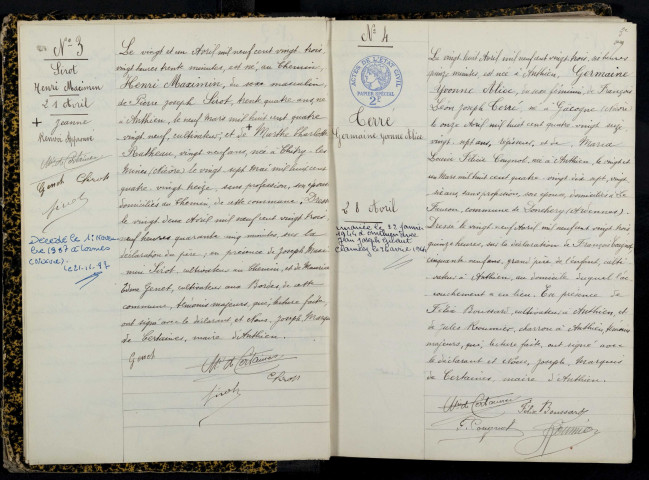 N° 3
Sirot
Henri Maximin
21 Avril
+
Jeanne
Décédé le 1° Nov
bre 1987 à Lormes
(Nièvre).
Le 21.11.87
Le vingt et un Avril mil neuf cent vingt trois,
vingt heures trente minutes, est né, au Chemin,
Henri Maximin, du sexe masculin,
de Pierre Joseph Sirot, trente quatre ans, né
à Anthien, le neuf Mars mil huit cent quatre
vingt neuf, cultivateur; et de Marthe Charlotte
Ratheau, vingt neuf ans, née à Chitry-les-
Mines (Nièvre) le vingt sept Mai mil huit cent
quatre vingt treize, sans profession, son épouse,
domiciliés au Chemin, de cette commune. Dressé
le vingt deux Avril mil neuf cent vingt trois,
neuf heures quarante cinq minutes, sur la
déclaration du père; en présence de Joseph
Sirot, cultivateur au Chemin, et de Maurice
Genet, cultivateur aux Bordes, de cette
commune, témoins majeurs, qui, lecture faite,
ont signé avec le déclarant, et Nous, Joseph, Marquis
de Certaines, maire d'Anthien.
Genet
Mis de Certaines
Sirot
Sirot
N° 4
ACTES DE L'ÉTAT CIVIL
PAPIER SPÉCIAL
2F
Terré
Germaine Yvonne Alice
28 Avril
mariée le 22 janvier
1944 à
Jean Joseph
Clamecy le
Le vingt huit Avril mil neuf cent vingt trois, six heures
quinze minutes, est née à Anthien, Germaine
Yvonne Alice, du sexe féminin, de François
Léon Joseph Terré, né à Gâcogne (Nièvre)
le onze Avril mil huit cent quatre vingt seize,
vingt sept ans, et de Maria
Louise Félicie Caugnot, née à Anthien, le vingt et
un Mars mil huit cent quatre vingt dix sept, vingt
six ans, sans profession, son épouse, domiciliés à
commune de (Ardennes).
Dressé le vingt neuf Avril mil neuf cent vingt trois,
heures, sur la déclaration de François Caugnot,
cinquante neuf ans, grand père de l'enfant, culti-
vateur à Anthien, au domicile duquel l'ac-
couchement a eu lieu. En présence de
Félix Boussard, cultivateur à Anthien, et
de Jules charron à Anthien, témoins
majeurs, qui, lecture faite, ont signé avec
le déclarant et Nous, Joseph, Marquis
de Certaines, maire d'Anthien.
Mis de Certaines
Félix Boussard
F. Caugnot